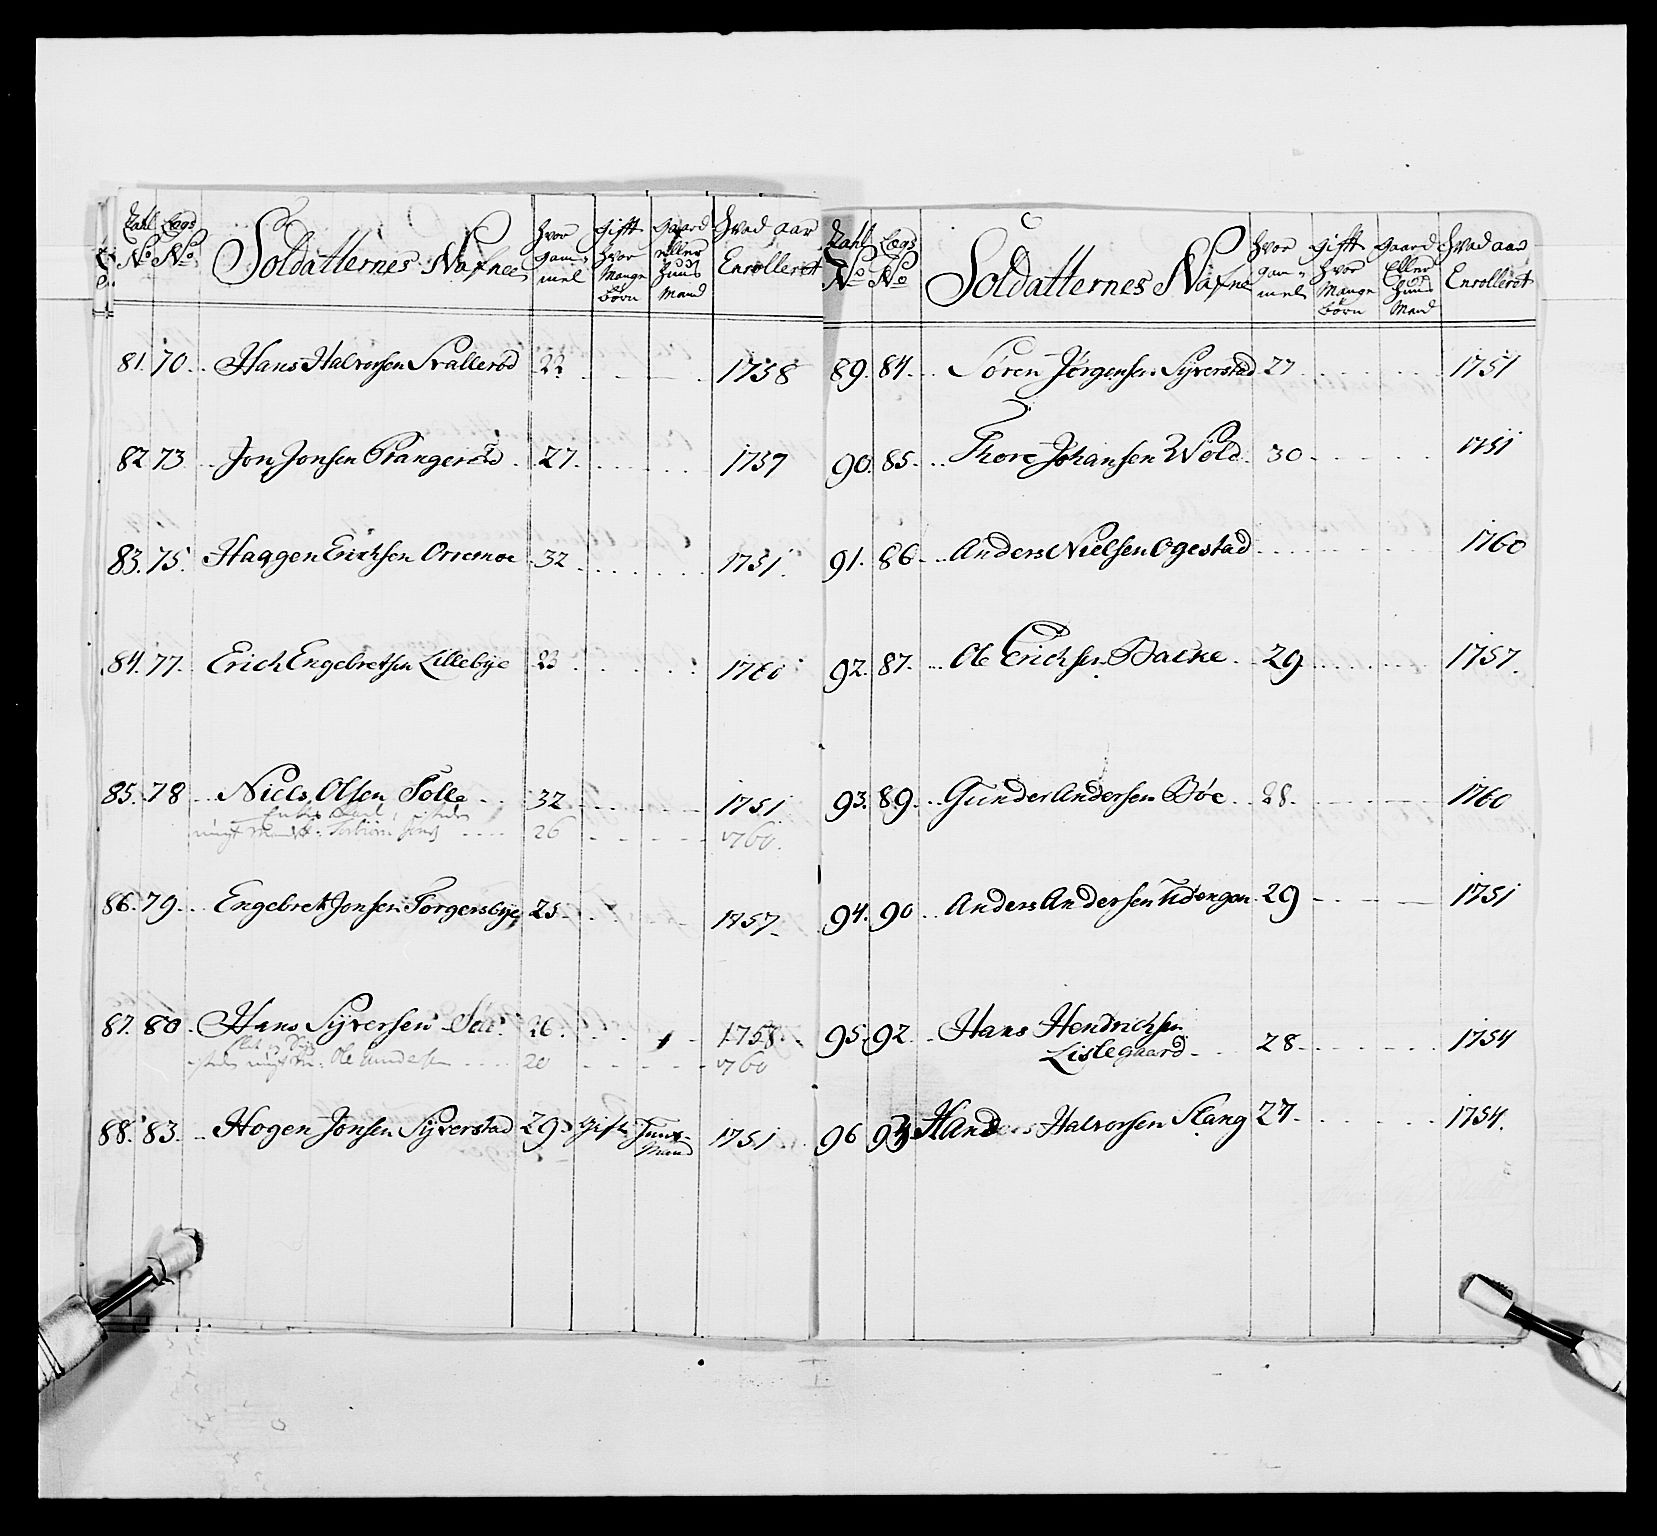 Zahl No Lægs No Soldatternes Nafne hvor gam- mel gifft hvor Mange Børn gaard Eller Huus Mand Hvad aar Enrolleret
81. 70. Hans Halvorsen 22 1758
82 73 Jon Jonsen Prangerød 27. 1757
83. 75. Haagen Erichsen Orremoe 32 1751.
84. 77. Erich Engebretsen Lillebye 23 1760
85. 78 Niels Olsen Tolle 32 1751
26 1760.
86. 79. Engebret Jonsen Torgersbye 25. 1757
87. 80. Hans Syversen 26. 1758.
Ole 20 1760
88. 83. Hogen Jonsen Syverstad 29 Gift Huus- Mand 1751
Zahl No Lægs No Soldatternes Nafne hvor gam- mel gifft hvor Mange Børn gaard Eller Huus Mand Hvad aar Enrolleret
89. 84. Søren Jørgensen Syverstad 27 1751
90. 85. Thore Johansen Wold. 30 1751
91. 86 Anders Nielsen Ogestad 1760
92. 87. Ole Erichsen Backe 29 1757.
93. 89. Gunder Andersen Bøe 28. 1760
94. 90 Anders Andersen 29 1751
95. 92. Hans Hendrichsen
Lislegaard 28 1754
96 93 Halvorsen Slang 27. 1754.